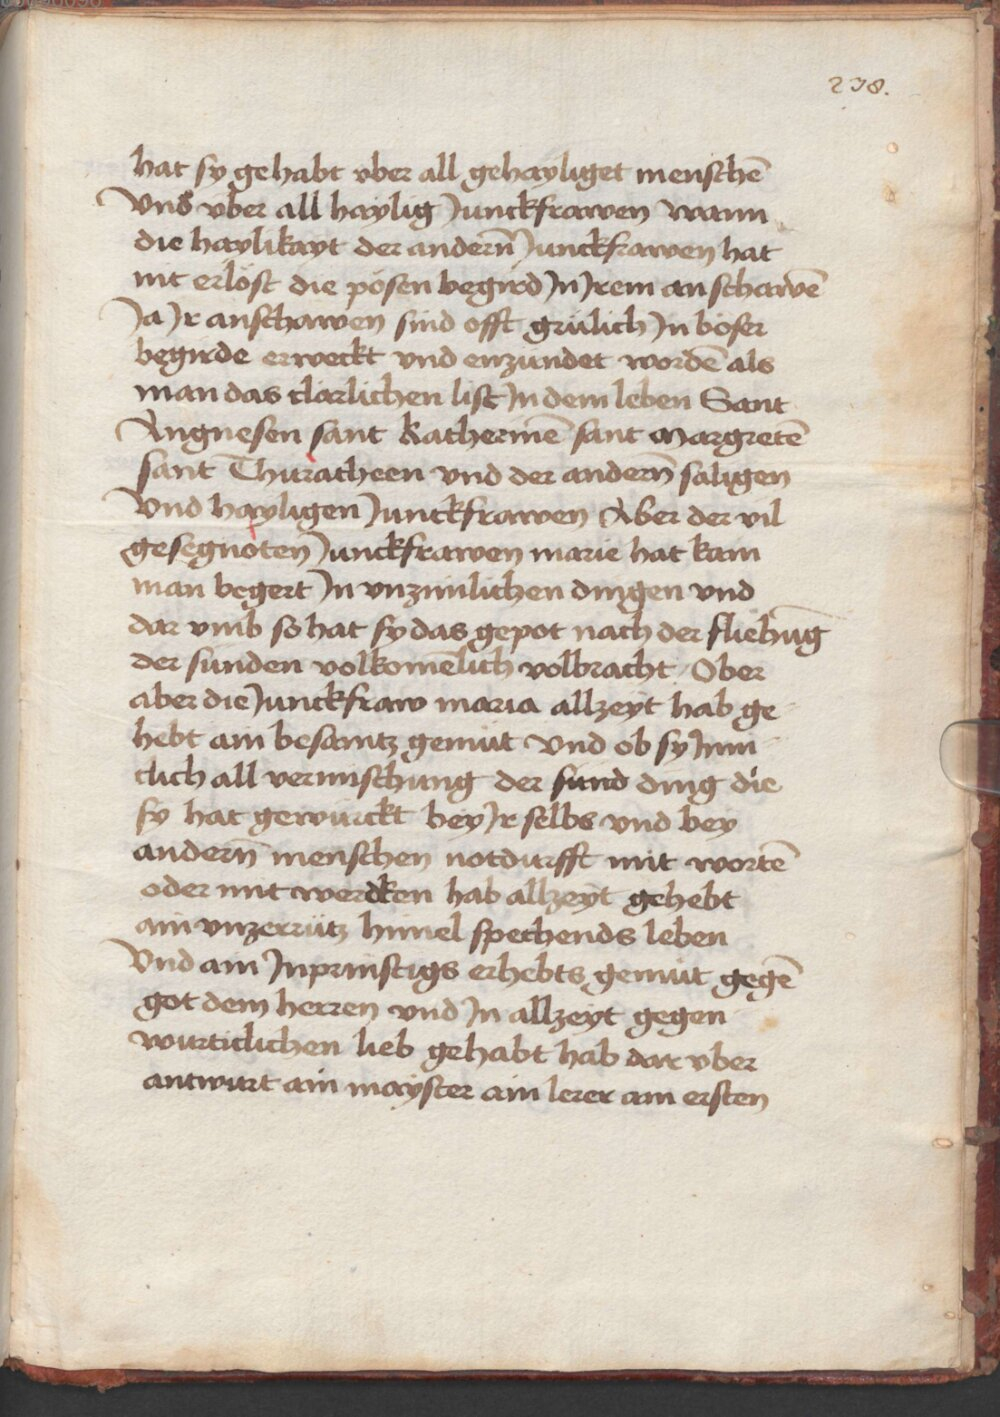 238.
hat sy gehabt vber all gehayliget menschē
Vnd vber all haylig Junckfrawen wann
die haylikayt der andern̄ Junckfrawen hat
nit erlöst die pösen begird Jn Jrem anschawē
Ja Jr anschawen sind offt grülich Jn böser
begirde erweckt vnd enzundet wordē als
man das clarlichen list Jn dem leben Sant
Angnesen sant Katherinē sant Margretē
sant Thuratheen vnd der andern̄ saligen
Vnd hayligen Junckfrawen Aber der vil
gesegnoten Junckfrawen marie hat kain
man begert Jn vnzimlichen dingen vnd
dar vmb so hat sy das gepot nach der fliehūg
der sunden volkomēlich volbracht Ober
aber die Junckfraw maria allzeyt hab ge
hebt ain besamtz gemüt Vnd ob sy Jnni
clich all vermischung der sund ding die
sy hat gewürckt bey Jr selbs vnd bey
andern̄ menschen notdurfft mit wortē
oder mit werdken hab allzeyt gehebt
ain vnzerrütz himel spechends leben
Vnd ain Jnprinstigs erhebts gemüt gegē
got dem herren vnd Jn allzeyt gegen
wurticlichen lieb gehabt hab dar vber
antwurt ain mayster ain lerer am ersten